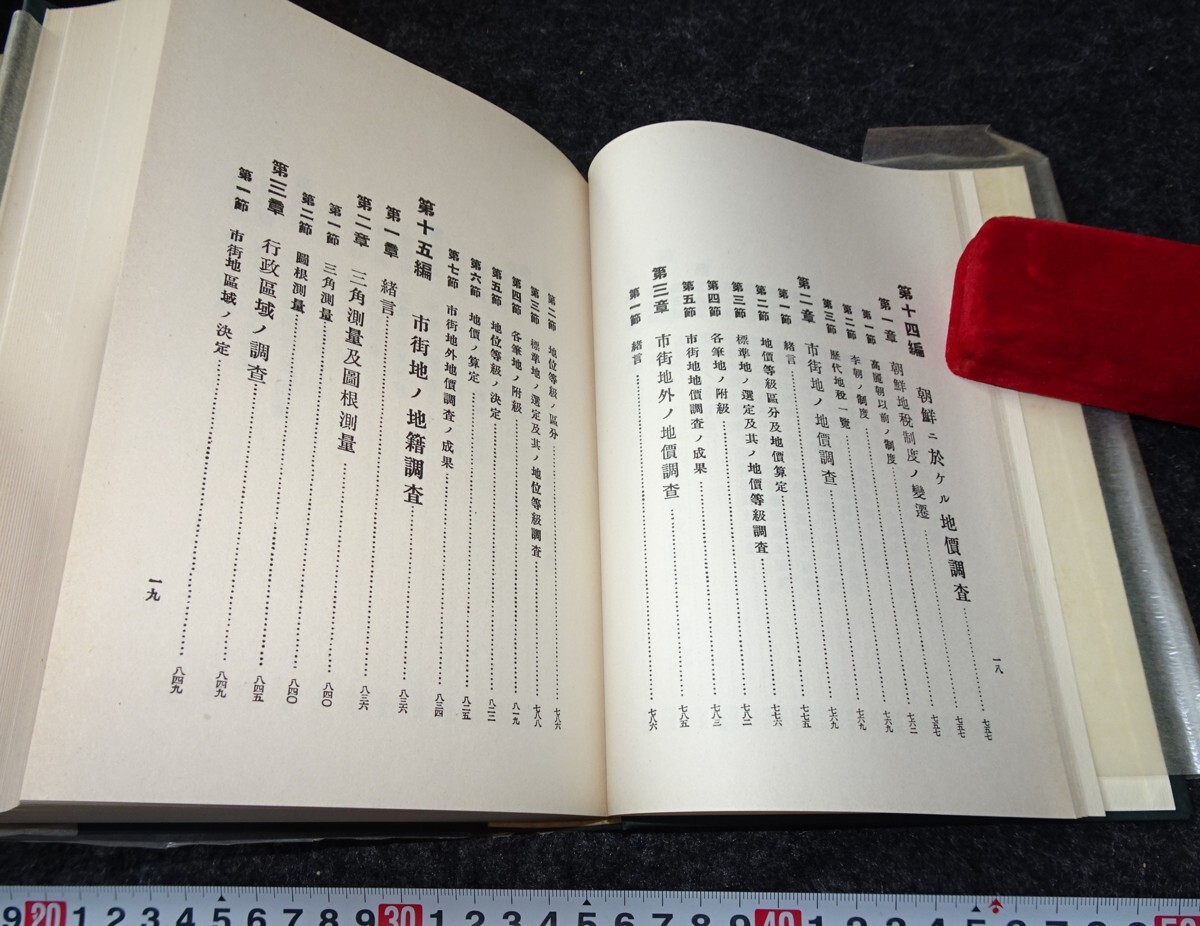 第十四編　朝鮮ニ於ケル地價調査……七五七
第一章　朝鮮地税制度ノ變遷……七五七
第一節　高麗朝以前ノ制度……七五七
第二節　李朝ノ制度……七六二
第三節　歷代地税一覽……七六九
第二章　市街地ノ地價調査……七六九
第一節　緒言……七六九
第二節　地價等級區分及地價算定……七七五
第三節　標準地ノ選定及其ノ地價等級調査……七七六
第四節　各筆地ノ附級……七八二
第五節　市街地地價調査ノ成果……七八三
第三章　市街地外ノ地價調査……七八五
第一節　緒言……七八六
一八
第二節　地位等級ノ區分……七八六
第三節　標準地ノ選定及其ノ地位等級調査……七八八
第四節　各筆地ノ附級……八一九
第五節　地位等級ノ決定……八二二
第六節　地價ノ算定……八二五
第七節　市街地外地價調査ノ成果……八三四
第十五編　市街地ノ地籍調査……八三六
第一章　緒言……八三六
第二章　三角測量及圖根測量……八四〇
第一節　三角測量……八四〇
第二節　圖根測量……八四五
第三章　行政區域ノ調査……八四九
第一節　市街地區域ノ決定……八四九
一九
9 20 1 2 3 4 5 6 7 8 9 30 1 2 3 4 5 6 7 8 9 40 1 2 3 4 5 6 7 8 9 50